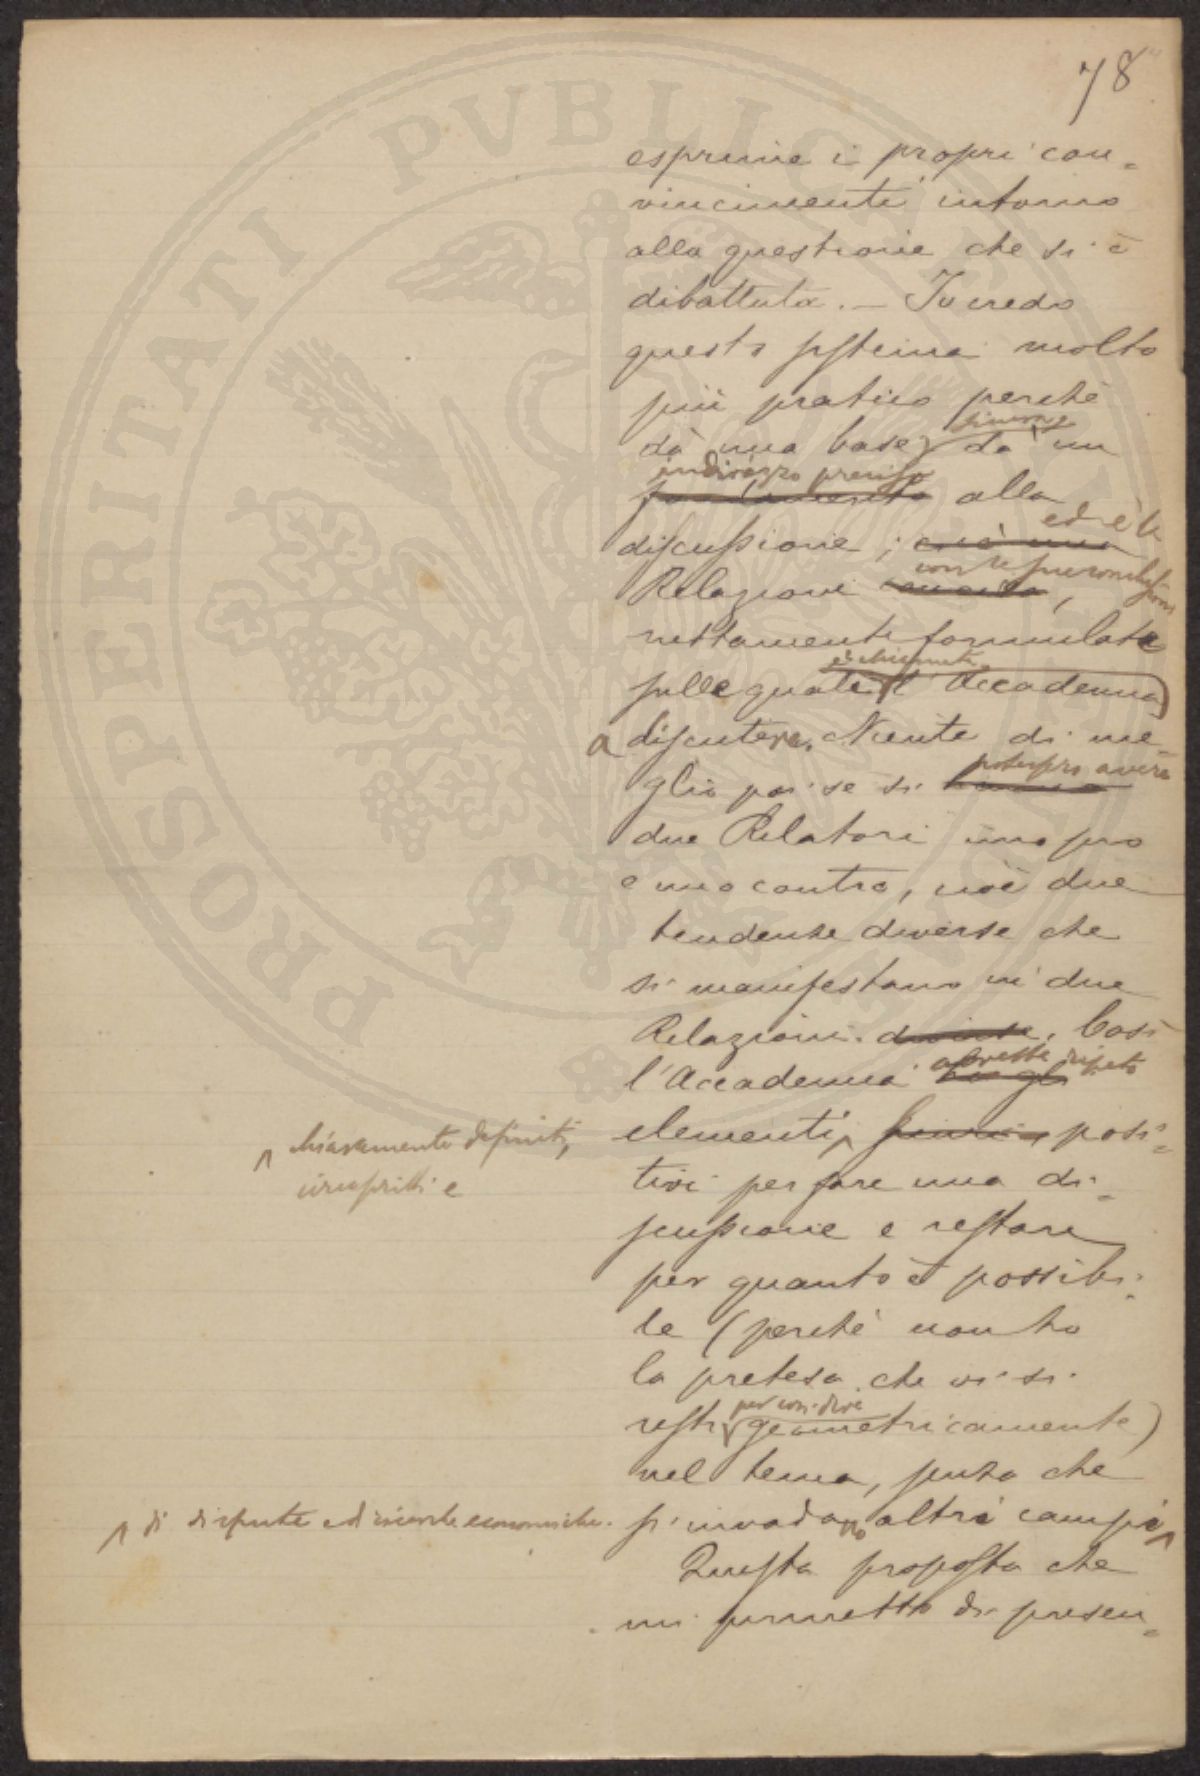 78
esprime i propri con-
vincimenti intorno
alla questione che si è
dibattuta. — Io credo
questo sistema molto
più pratico perchè
dà una base, dà un
indirizzo preciso
fondamento alla
ed è la
discussione; cioè una
con le sue conclusioni
Relazione
nettamente formulate
è chiamata
sulle quali l'Accademia
a discutere. Niente di me-
potessero avere
glio poi se si
due Relatori uno pro
e uno contro, cioè due
tendenze diverse che
si manifestano in due
Relazioni diverse. Così
l'Accademia avrebbe
elementi, positi-
chiaramente definiti,
circoscritti e
tivi per fare una di-
scussione e restare
per quanto è possibi-
le (perchè non ho
la pretesa che vi si
per così dire
resti geometricamente)
nel tema, senza che
si invadano altri campi
di dispute ed ricerche economiche.
Questa proposta che
mi permetto di presen-
PROSPERITATI PVBLICAE